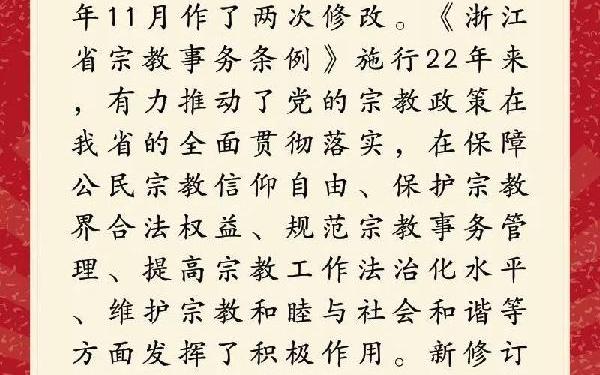 年11月作了两次修改。《浙江
省宗教事务条例》施行22年来
，有力推动了党的宗教政策在
我省的全面贯彻落实，在保障
公民宗教信仰自由、保护宗教
界合法权益、规范宗教事务管
理、提高宗教工作法治化水平
、维护宗教和睦与社会和谐等
方面发挥了积极作用。新修订